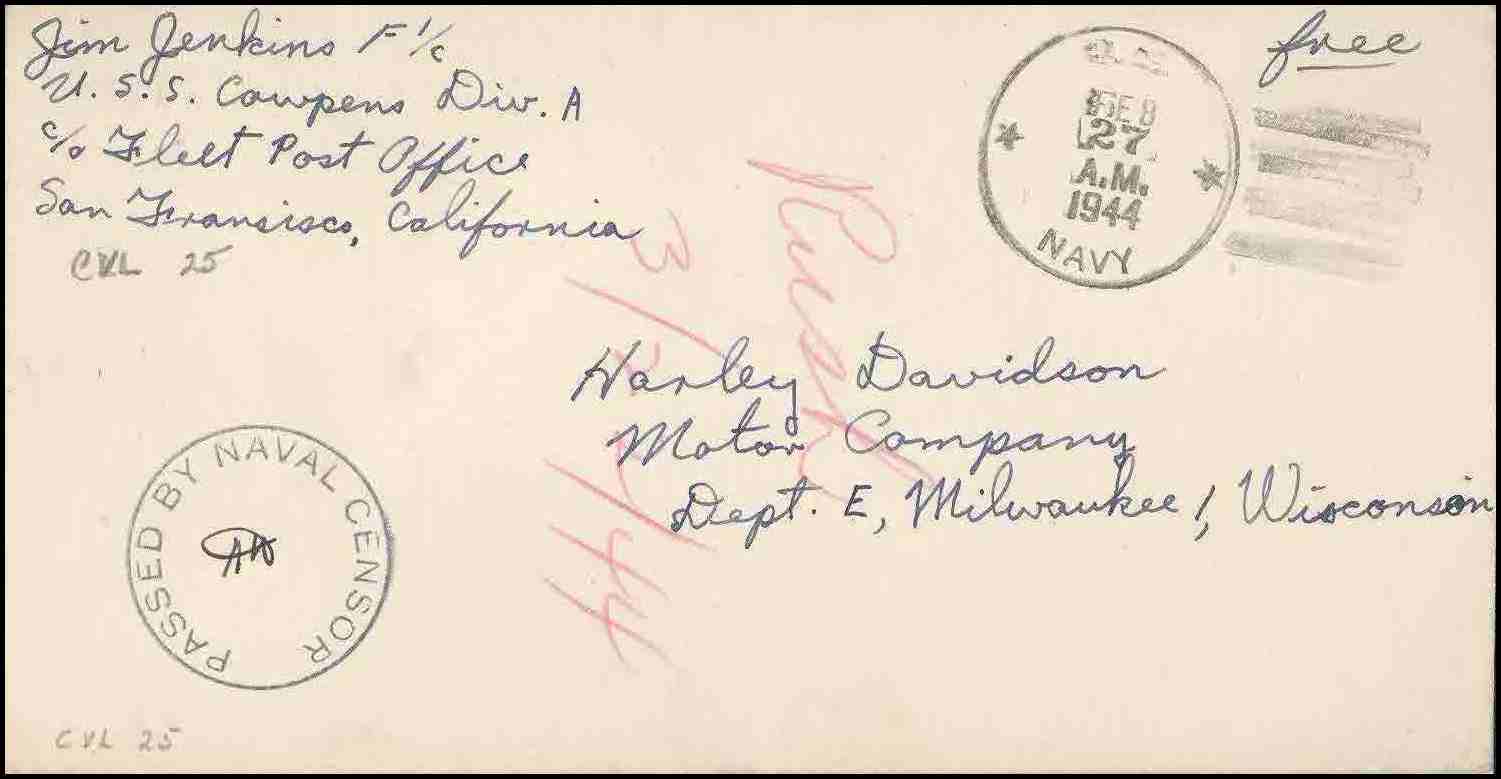 Jim Jenkins F 1/c
U.S.S. Cowpens Div. A
c/o Fleet Post Office
San Fransisco, California
CVL 25
free
FEB
27
A.M.
1944
NAVY
Rush
Harley Davidson
Motor Company
Dept. E, Milwaukee 1, Wisconsin
PASSED BY NAVAL CENSOR
CVL 25